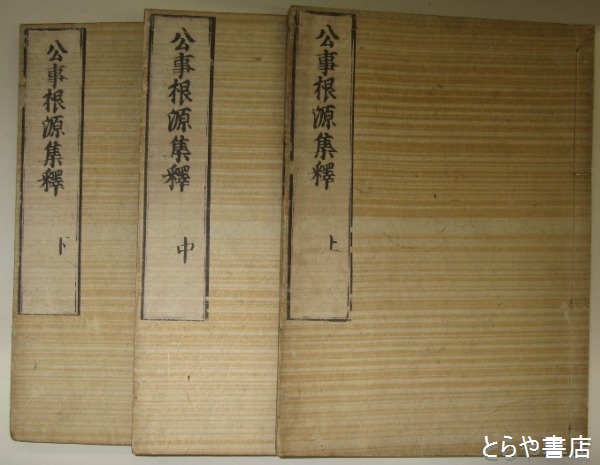 公事根源集釋 上
公事根源集釋 中
公事根源集釋 下
とらや書店